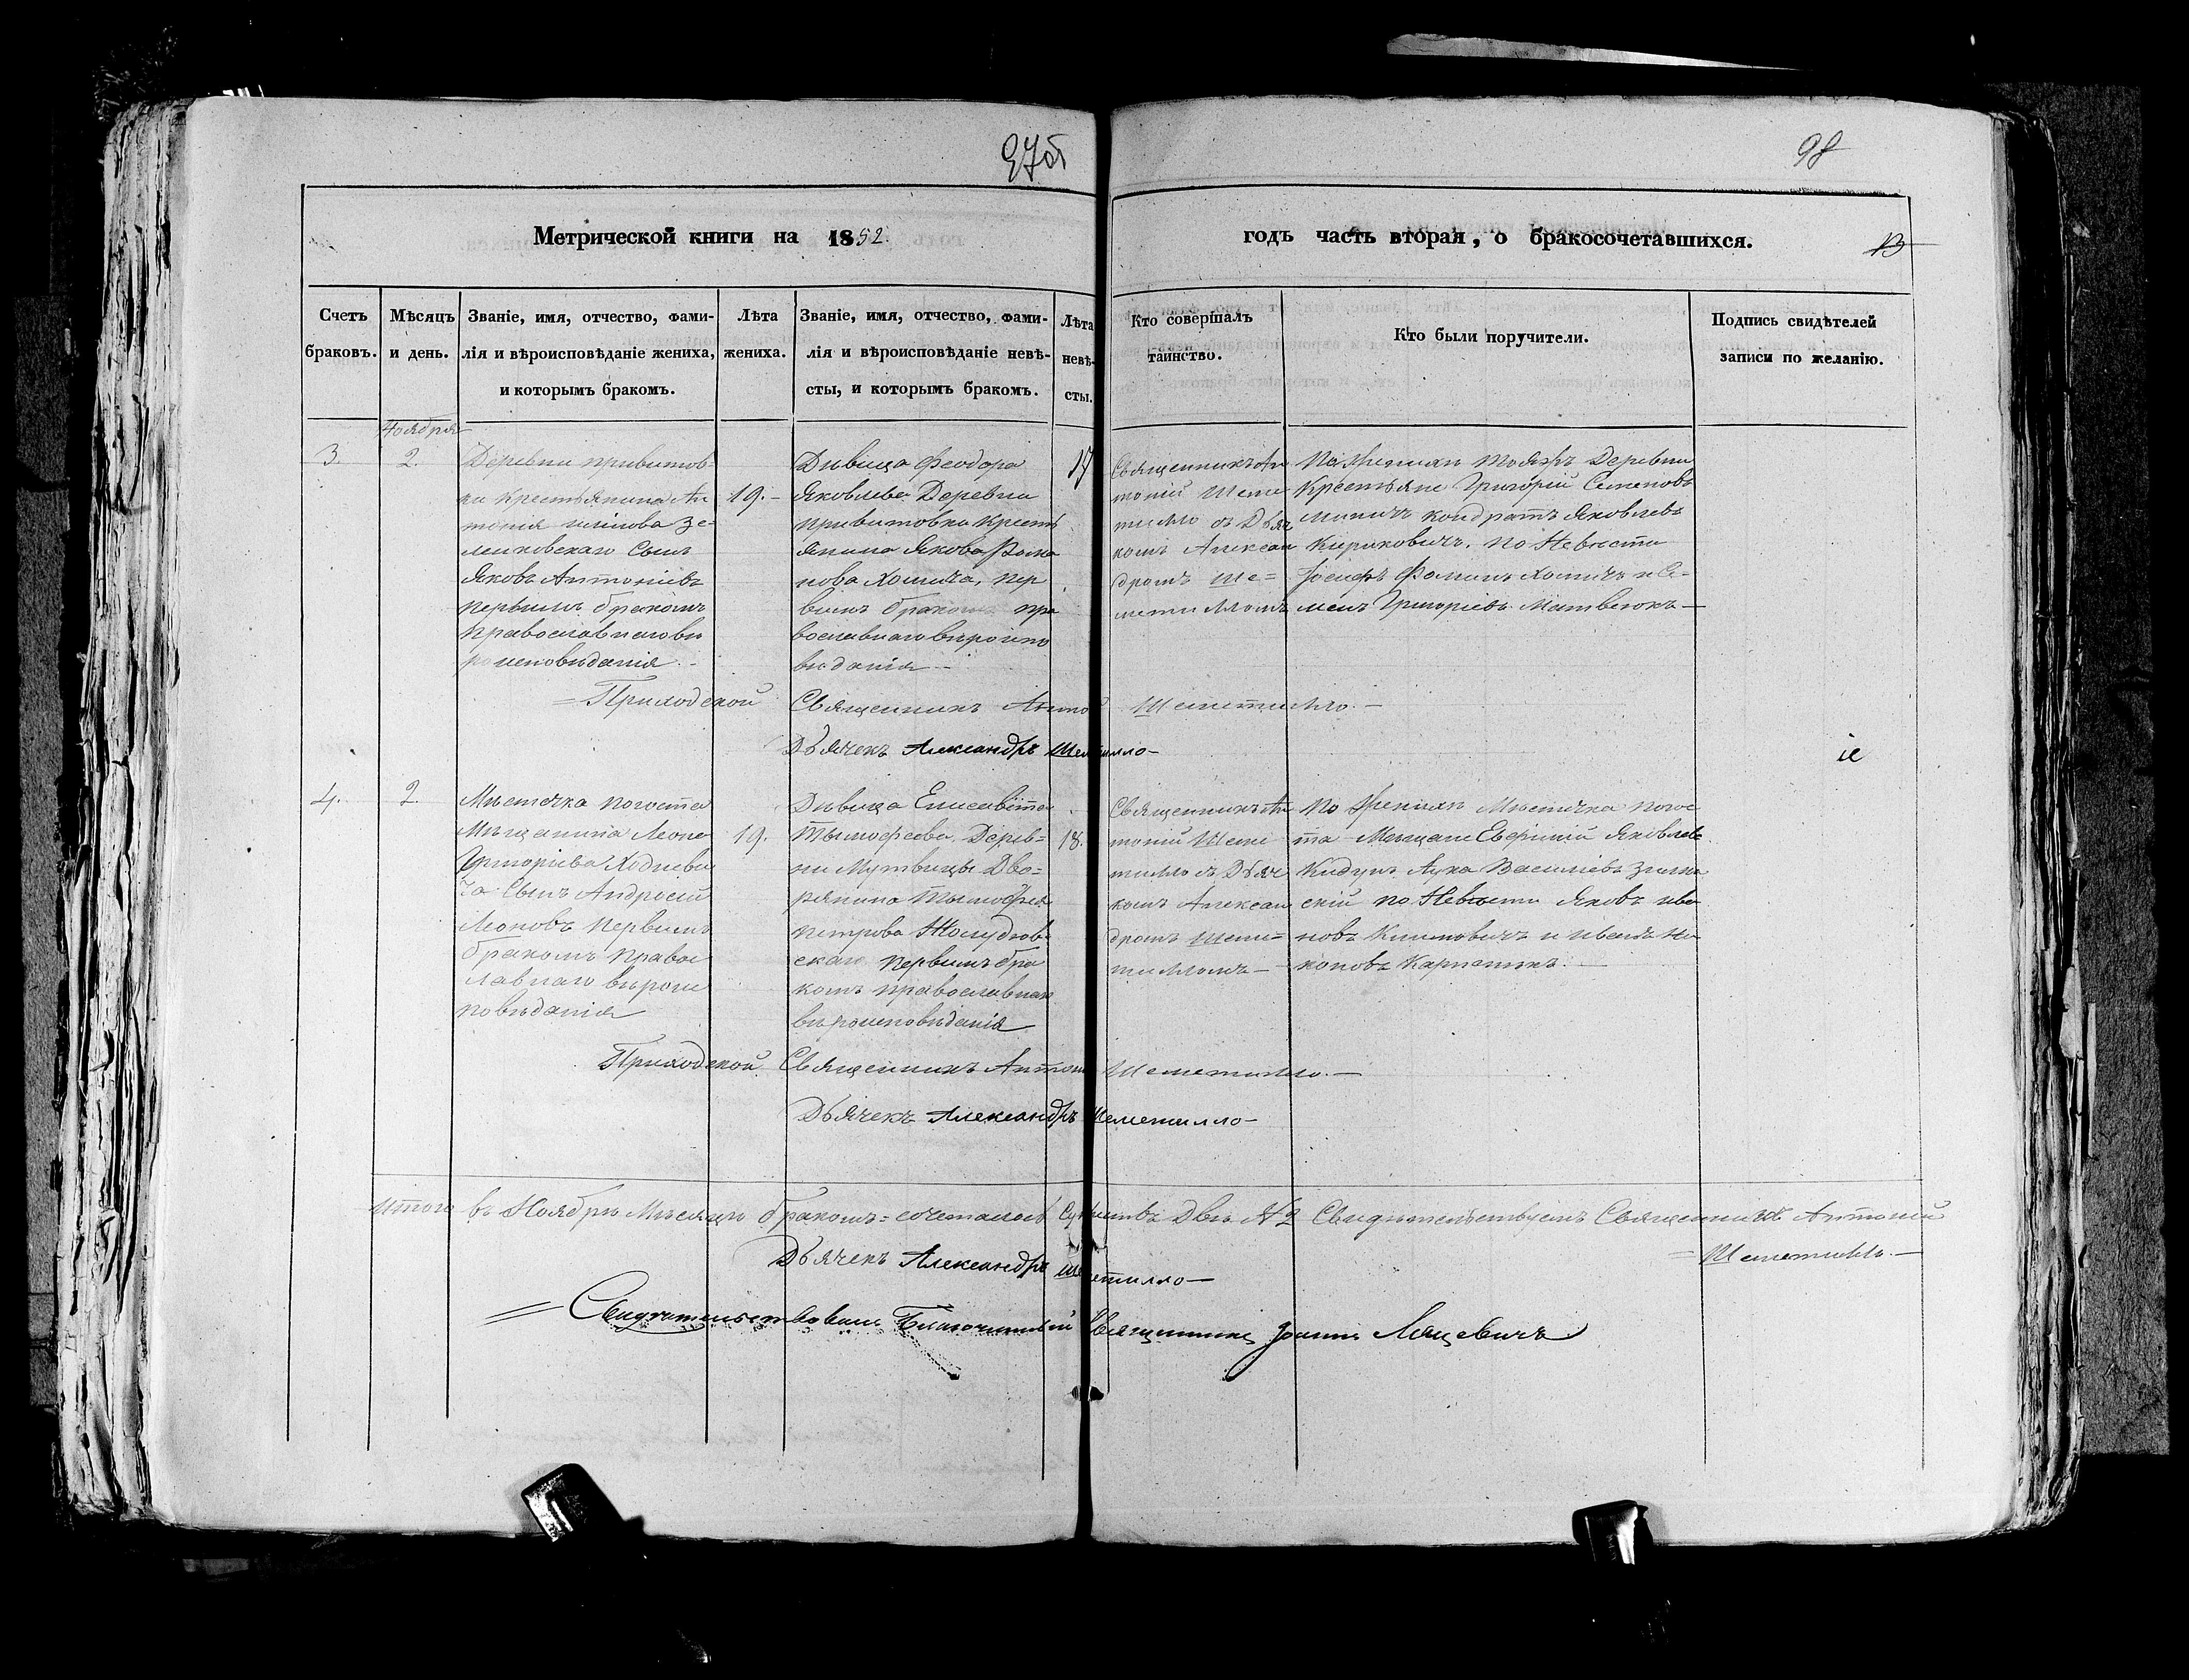 97об
98
Метрической книги на 1852.
годъ часть вторая, о бракосочетавшихся.
13
Счетъ браковъ.
Мѣсяцъ и день.
Званіе, имя, отчество, фами-
лія и вѣроисповѣданіе жениха,
и которымъ бракомъ.
Лѣта
жениха.
Званіе, имя, отчество, фами-
лія и вѣроисповѣданіе невѣ-
сты, и которымъ бракомъ.
Лѣта
невѣ-
сты.
Кто совершалъ
таинство.
Кто были поручители.
Подпись свидѣтелей
записи по желанію.
Ноября
3.
2.
Деревни привитов-
ки Крестьянина Ан
тонія
ленковскаго Сынъ
Яковъ Антоніевъ
первымъ бракомъ
православнаго вѣ
роисповѣданія.
19.
Дѣвица Феодора
Яковлева Деревни
привитовки Кресть
янина Якова Рома
нова Хомича, пер
вымъ бракомъ пра
вославнаго вѣроиспо
вѣданія
17
Священникъ Ан
тоній Шеме
тилло съ Дьяч
комъ Алексан
дромъ Ше=
метилломъ
По Женихѣ тояжъ Деревни
Крестьяне Григорій Семеновъ
Миничъ Кондратъ Яковлевъ
Кириковичъ. по Невѣсти
Іосифъ Фоминъ Хомичъ и Се-
менъ Григоріевъ Матвеюкъ
Приходской Священникъ Антоній Шеметилло.
Дьячекъ Александръ Шеметилло
іе
4.
2.
Мѣстечка погоста
Мѣщанина Леона
Григоріева Ходневи
ча Сынъ Андрей
Леоновъ первымъ
бракомъ правос
лавнаго вѣроис
повѣданія
19.
Дѣвица Елисавета
Тымофеева Дерев=
ни Мутвицы Дво=
рянина Тымофея
петрова Жолудков-
скаго первымъ бра
комъ православнаго
вѣроисповѣданія
18.
Священникъ Ан
тоній Шеме
тилло съ Дьяч
комъ Алексан
дромъ Шеме=
тилломъ
По Женихѣ Мѣстечка погос
та Мѣщане Евфимій Яковлев
Кидунъ Лука Василіевъ
скій по Невѣсти Яковъ ива
новъ Климовичъ и иванъ Ни
коновъ Карпетикъ.
Приходской Священникъ Антоній Шеметилло.
Дьячекъ Александръ Шеметилло
Итого въ Ноябрѣ Мѣсяцѣ бракомъ=сочеталось Супружествъ Два №2 Свидѣтельствуемъ Священникъ Антоній
Шеметилло.
Дьячекъ Александръ Шеметилло
Свидѣтельствовалъ Благочинный Священникъ Іоаннъ Ляцевичъ